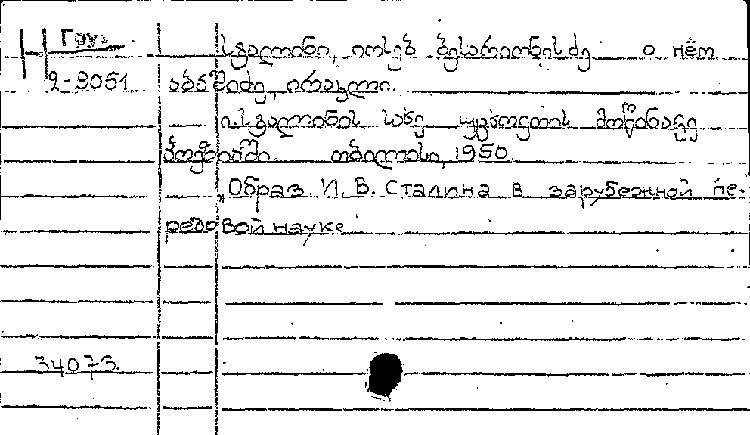 Н Груз
2-9051
სტალინი, იოსებ ბესარიონის ძე о нём
აბაშიძე, ირაკლი.
ი. სტალინის სახე უცხოეთის მოწინავე
პოეზიაში. თბილისი, 1950.
„Образ И. В. Сталина в зарубежной пе-
редовой науке
34073.